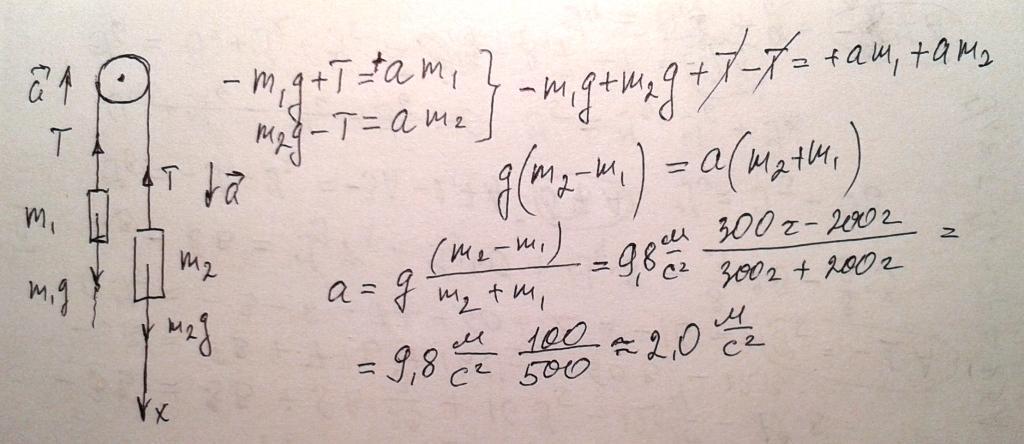 a⃗
T
T
a⃗
m₁
m₂
m₁g
m₂g
x
-m₁g+T=+am₁ } -m₁g+m₂g+T-T=+am₁+am₂
m₂g-T=am₂
g(m₂-m₁)=a(m₂+m₁)
a = g (m₂-m₁)/(m₂+m₁) = 9,8 м/с² (300г-200г)/(300г+200г) =
= 9,8 м/с² 100/500 ≈ 2,0 м/с²